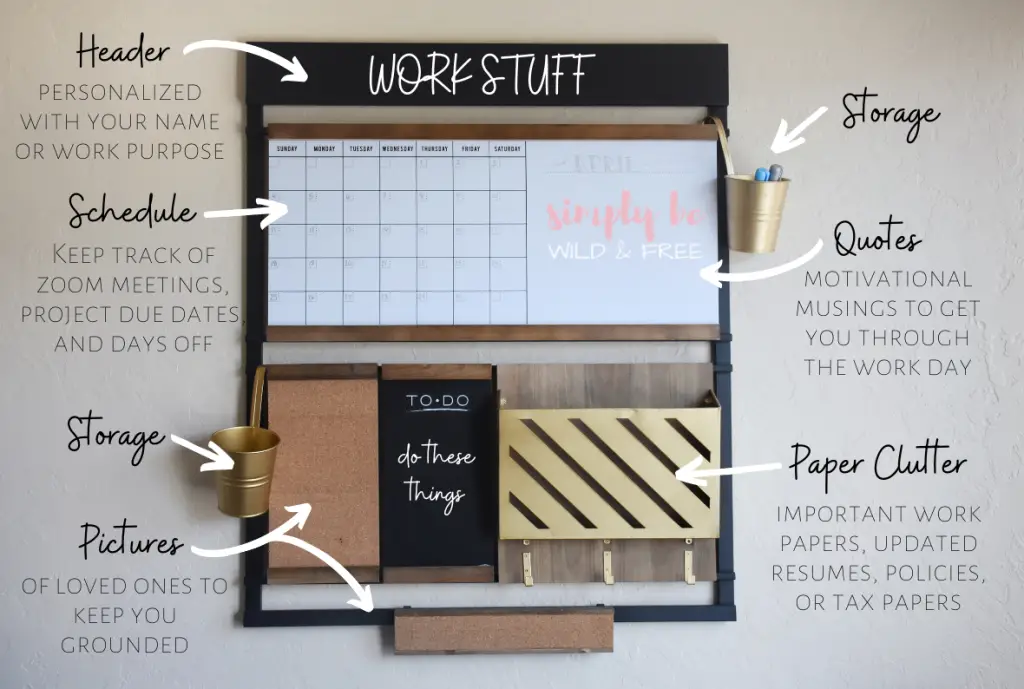 Header
PERSONALIZED
WITH YOUR NAME
OR WORK PURPOSE
WORK STUFF
Storage
SUNDAY MONDAY TUESDAY WEDNESDAY THURSDAY FRIDAY SATURDAY
APRIL
simply be
WILD & FREE
Schedule
KEEP TRACK OF
ZOOM MEETINGS,
PROJECT DUE DATES,
AND DAYS OFF
Quotes
MOTIVATIONAL
MUSINGS TO GET
YOU THROUGH
THE WORK DAY
TO•DO
do these
things
Storage
Paper Clutter
IMPORTANT WORK
PAPERS, UPDATED
RESUMES, POLICIES,
OR TAX PAPERS
Pictures
OF LOVED ONES TO
KEEP YOU
GROUNDED